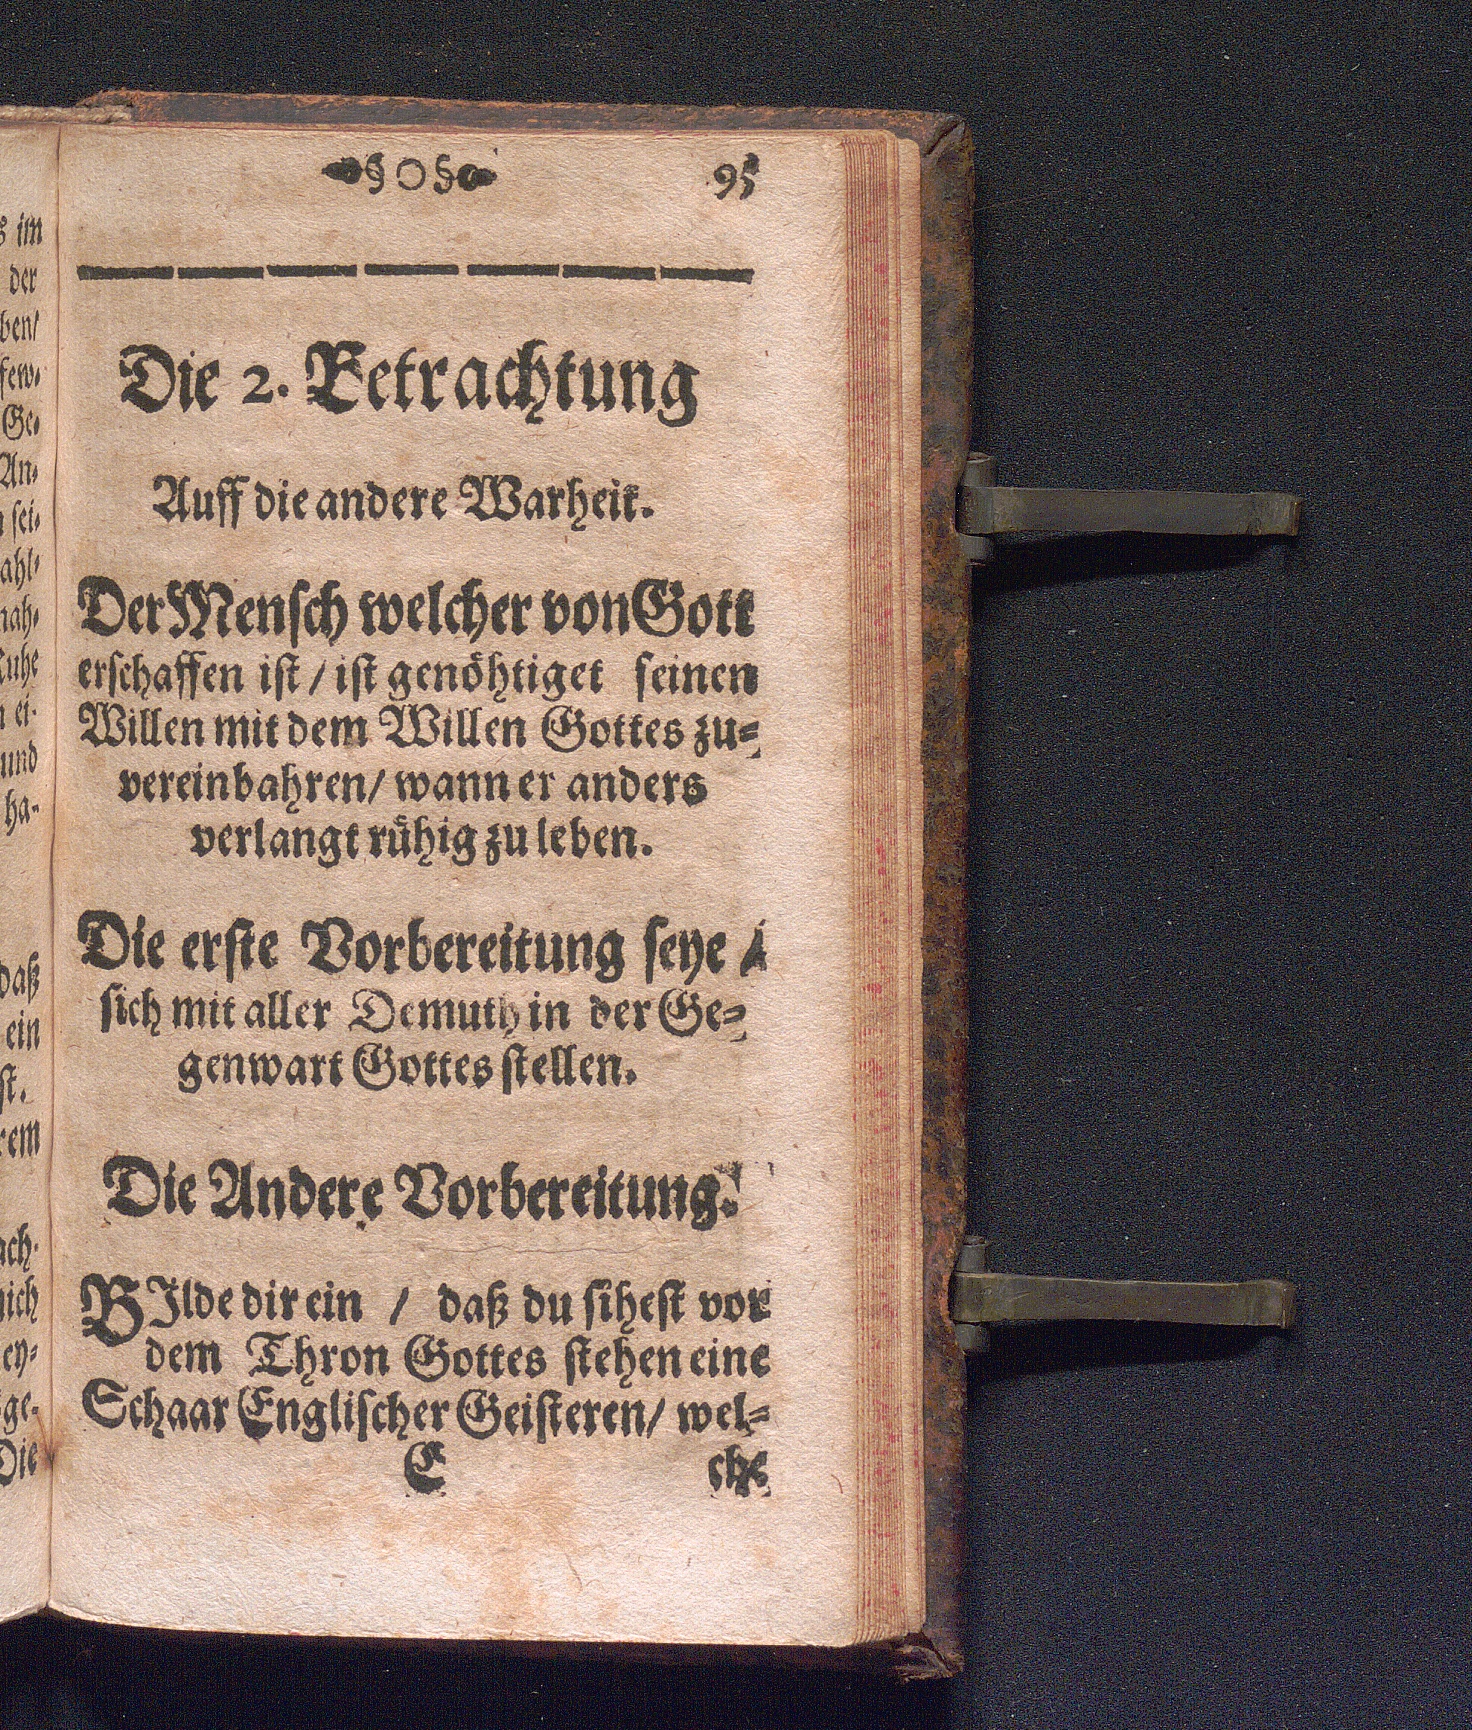 95
Die 2. Betrachtung
Auff die andere Warheit.
Der Mensch welcher von Gott
erschaffen ist / ist genöhtiget seinen
Willen mit dem Willen Gottes zu-
vereinbahren / wann er anders
verlangt rühig zu leben.
Die erste Vorbereitung seye /
sich mit aller Demuth in der Ge-
genwart Gottes stellen.
Die Andere Vorbereitung.
BJlde dir ein / daß du sihest vor
dem Thron Gottes stehen eine
Schaar Englischer Geisteren / wel-
E che